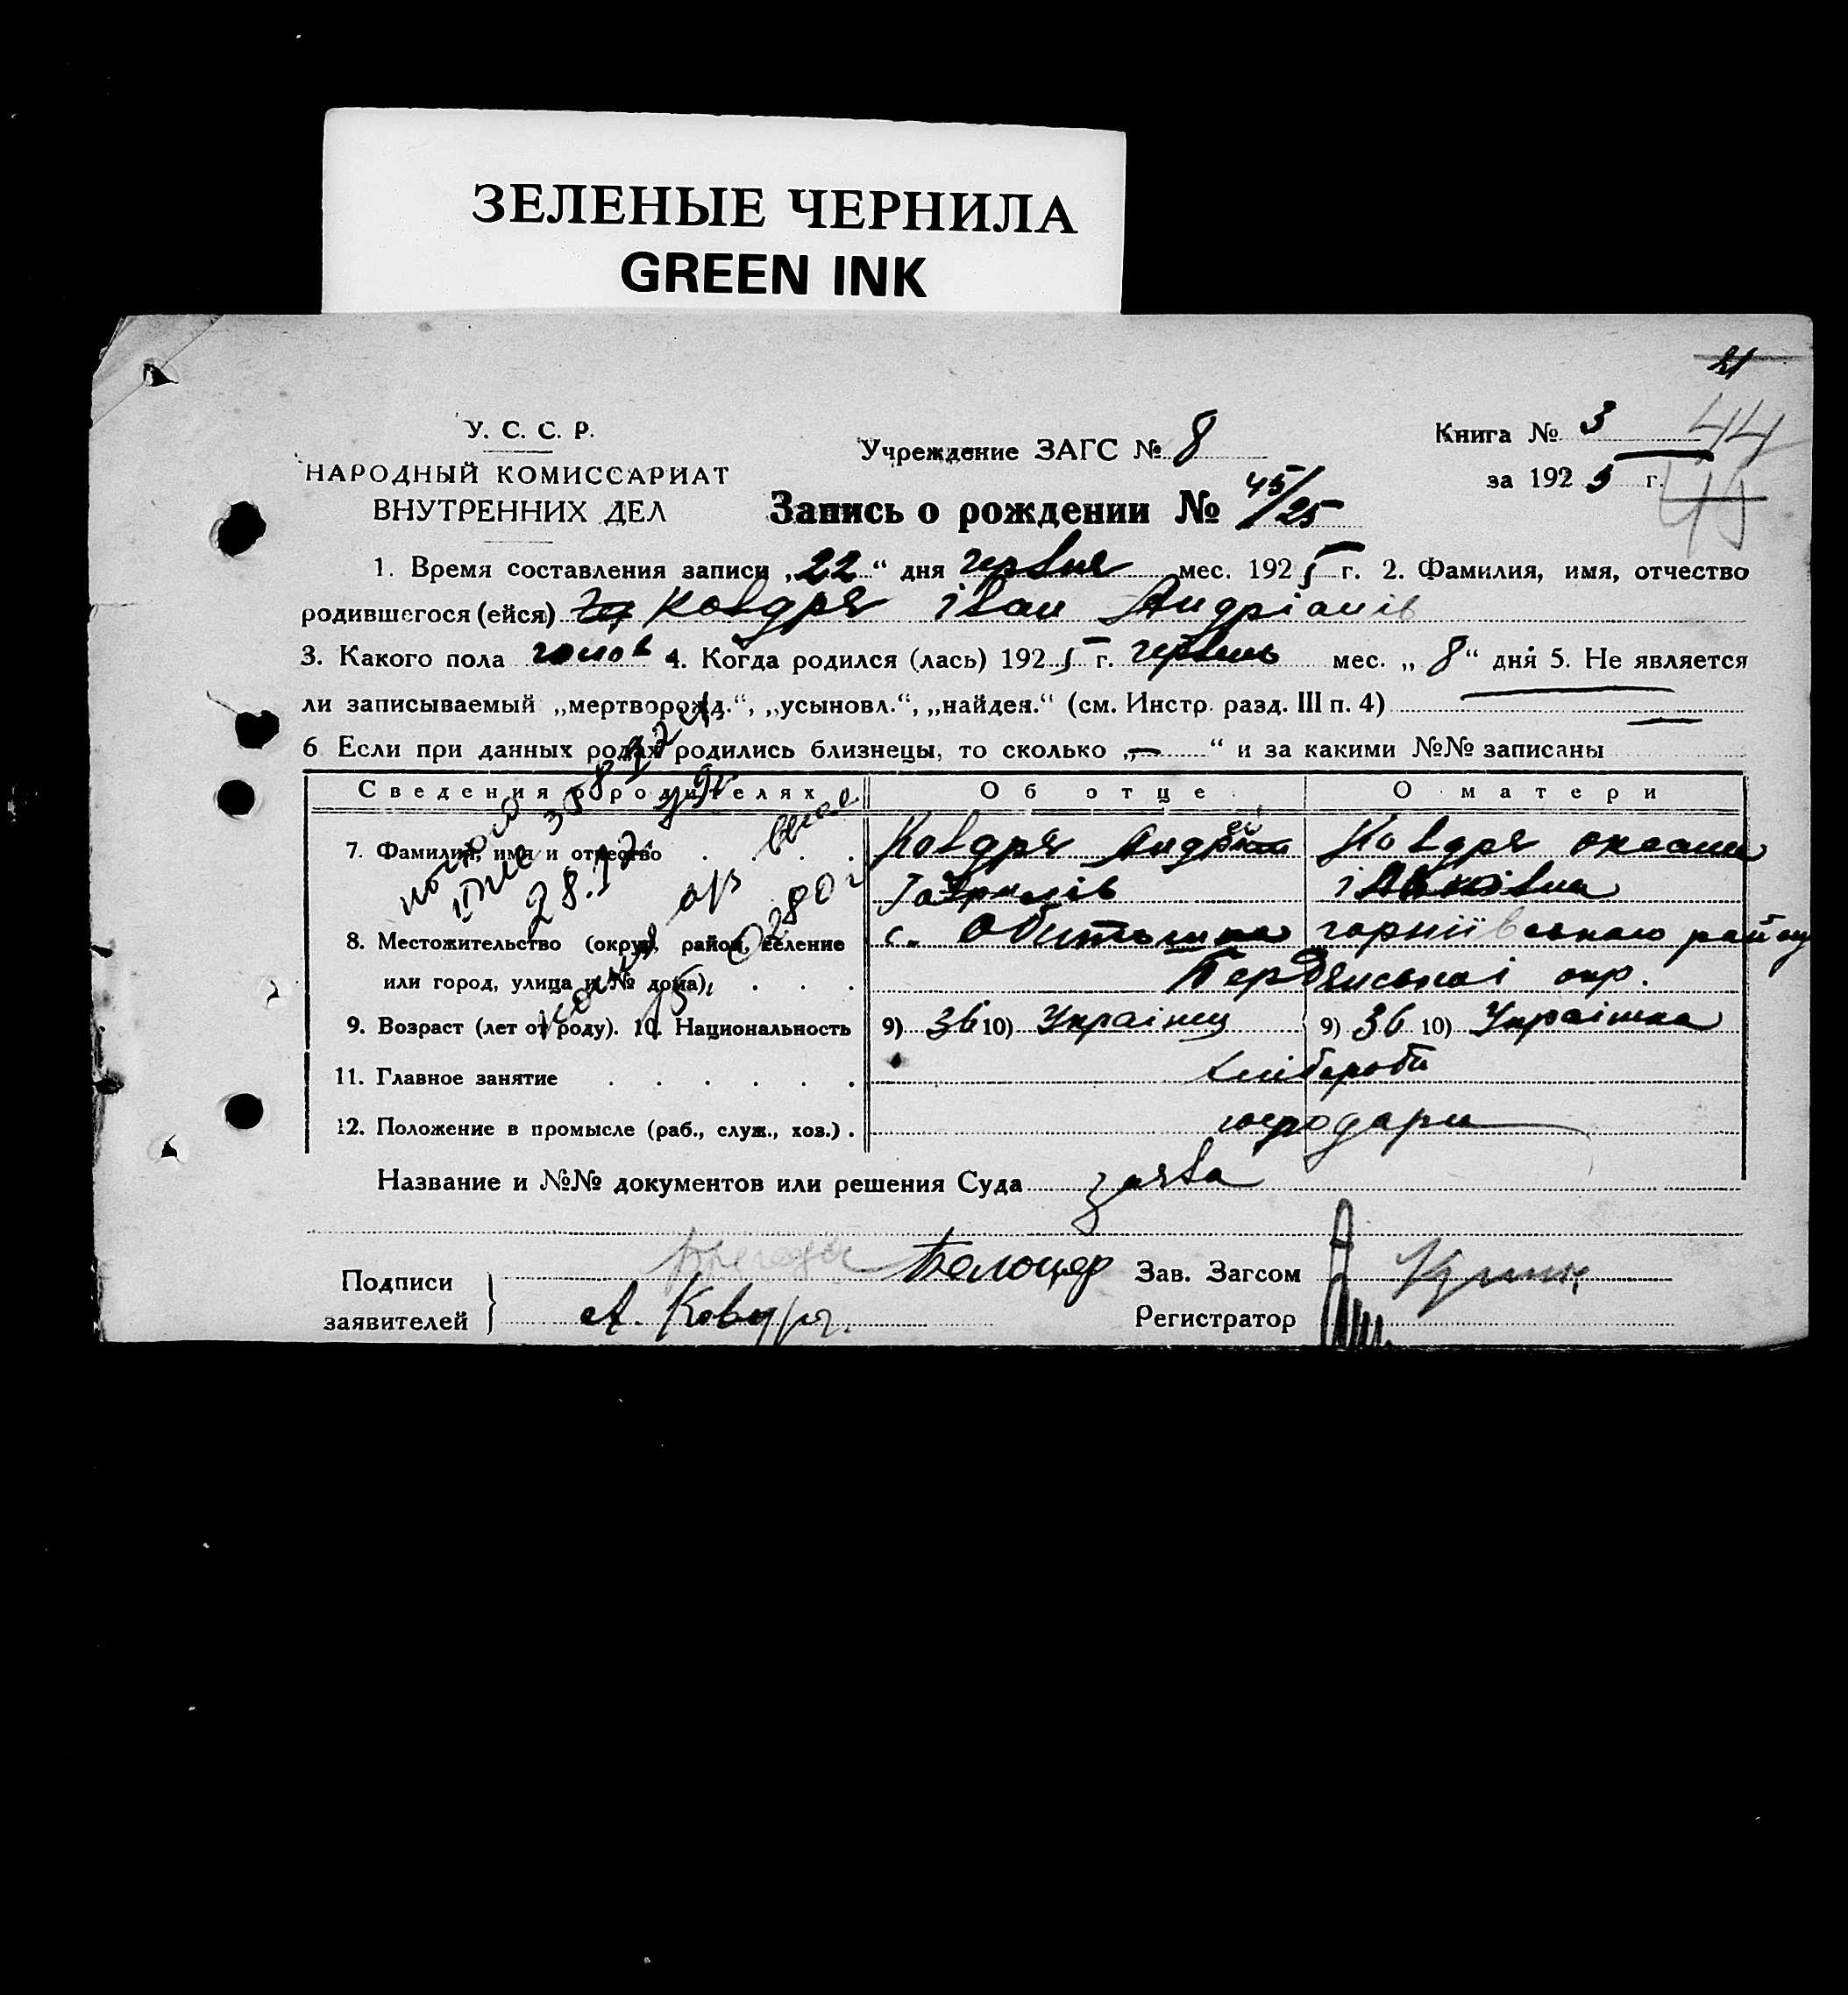 ЗЕЛЕНЫЕ ЧЕРНИЛА
GREEN INK
21
У. С. С. Р.
НАРОДНЫЙ КОМИССАРИАТ
ВНУТРЕННИХ ДЕЛ
Учреждение ЗАГС № 8
Книга № 3 44
за 1925 г. 45
Запись о рождении № 45/25
1. Время составления записи „22“ дня червня мес. 1925 г. 2. Фамилия, имя, отчество
родившегося (ейся) Ковдря іван Андріанів
3. Какого пола чолов 4. Когда родился (лась) 1925 г. червень мес. „8“ дня 5. Не является
ли записываемый „мертворожд.“, „усыновл.“, „найден.“ (см. Инстр. разд. III п. 4)
6 Если при данных родах родились близнецы, то сколько „—“ и за какими №№ записаны
Сведения о родителях Об отце О матери
7. Фамилия, имя и отчество Ковдря Андрій Ковдря оксана
Гаврилів іАківна
8. Местожительство (округ, район, селение с. Обиточна горніївського району
или город, улица и № дома) Бердянської окр.
9. Возраст (лет от роду). 10. Национальность 9) 36 10) Українец 9) 36 10) Українка
11. Главное занятие хлібороби
12. Положение в промысле (раб., служ., хоз.) господари
Название и №№ документов или решения Суда заява
Подписи
заявителей
Зав. Загсом
А. Ковдря.
Регистратор
28.12.